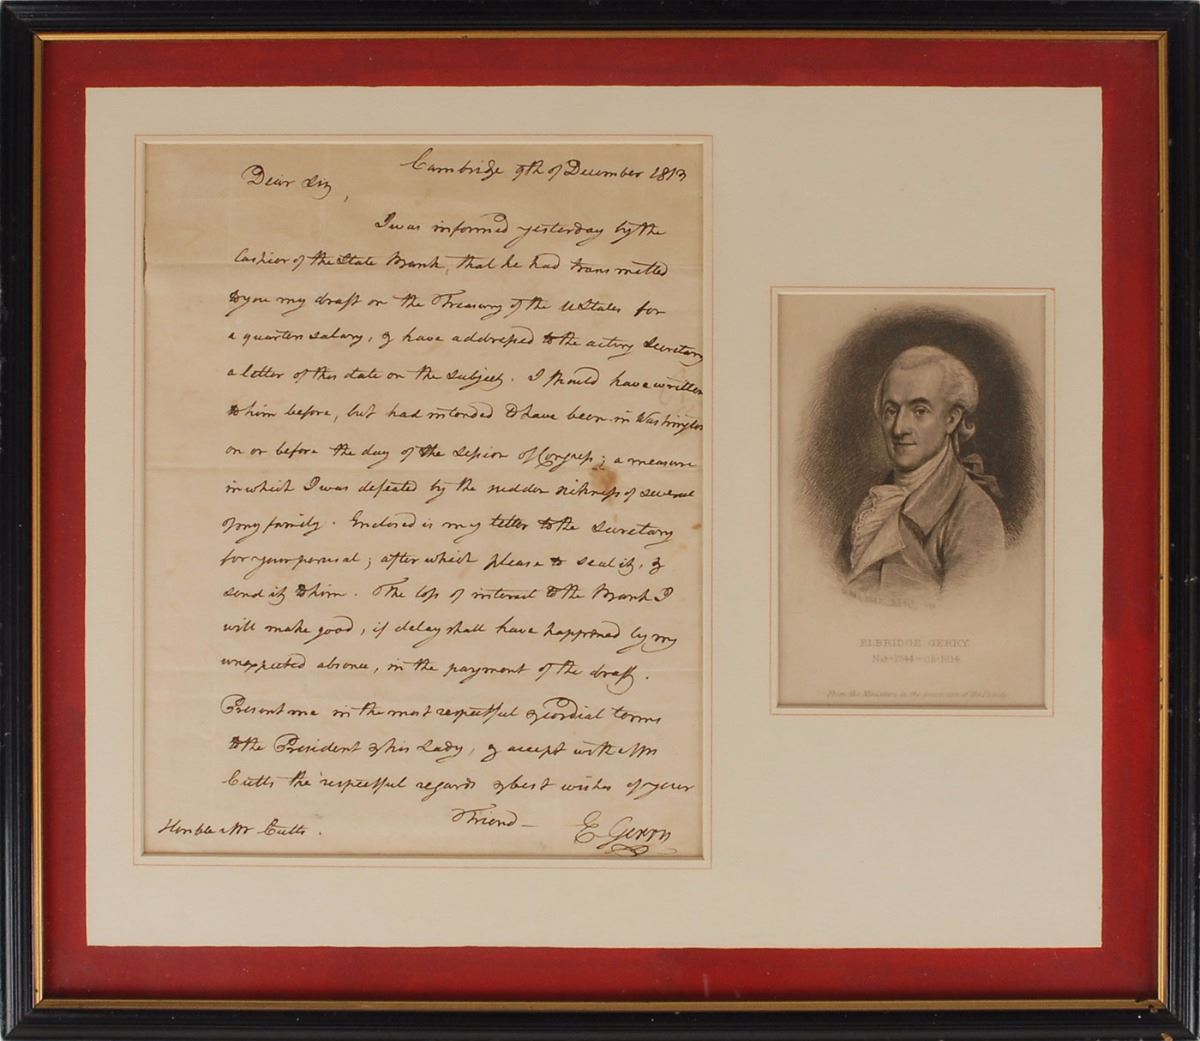 Cambridge 9th of December 1813
Dear Sir,
I was informed yesterday by the
Cashier of the State Bank, that he had transmitted
to you my draft on the Treasury of the UStates for
a quarters salary, & have addressed to the acting Secretary
a letter of this date on the subject. I should have written
to him before, but had intended to have been in Washington
on or before the day of the session of Congress; a measure
in which I was defeated by the sudden sickness of several
of my family. Enclosed is my letter to the Secretary
for your perusal; after which please to seal it, &
send it to him. The loss of interest to the Bank I
will make good, if delay shall have happened by my
unexpected absence, in the payment of the draft.
Present me in the most respectful & cordial terms
to the President & his Lady, & accept with Mrs
Cutts the respectful regards & best wishes of your
Friend—
E Gerry
Honble Mr Cutts.
ELBRIDGE GERRY.
Nat-1744-Ob-1814.
From the Miniature in the possession of the family